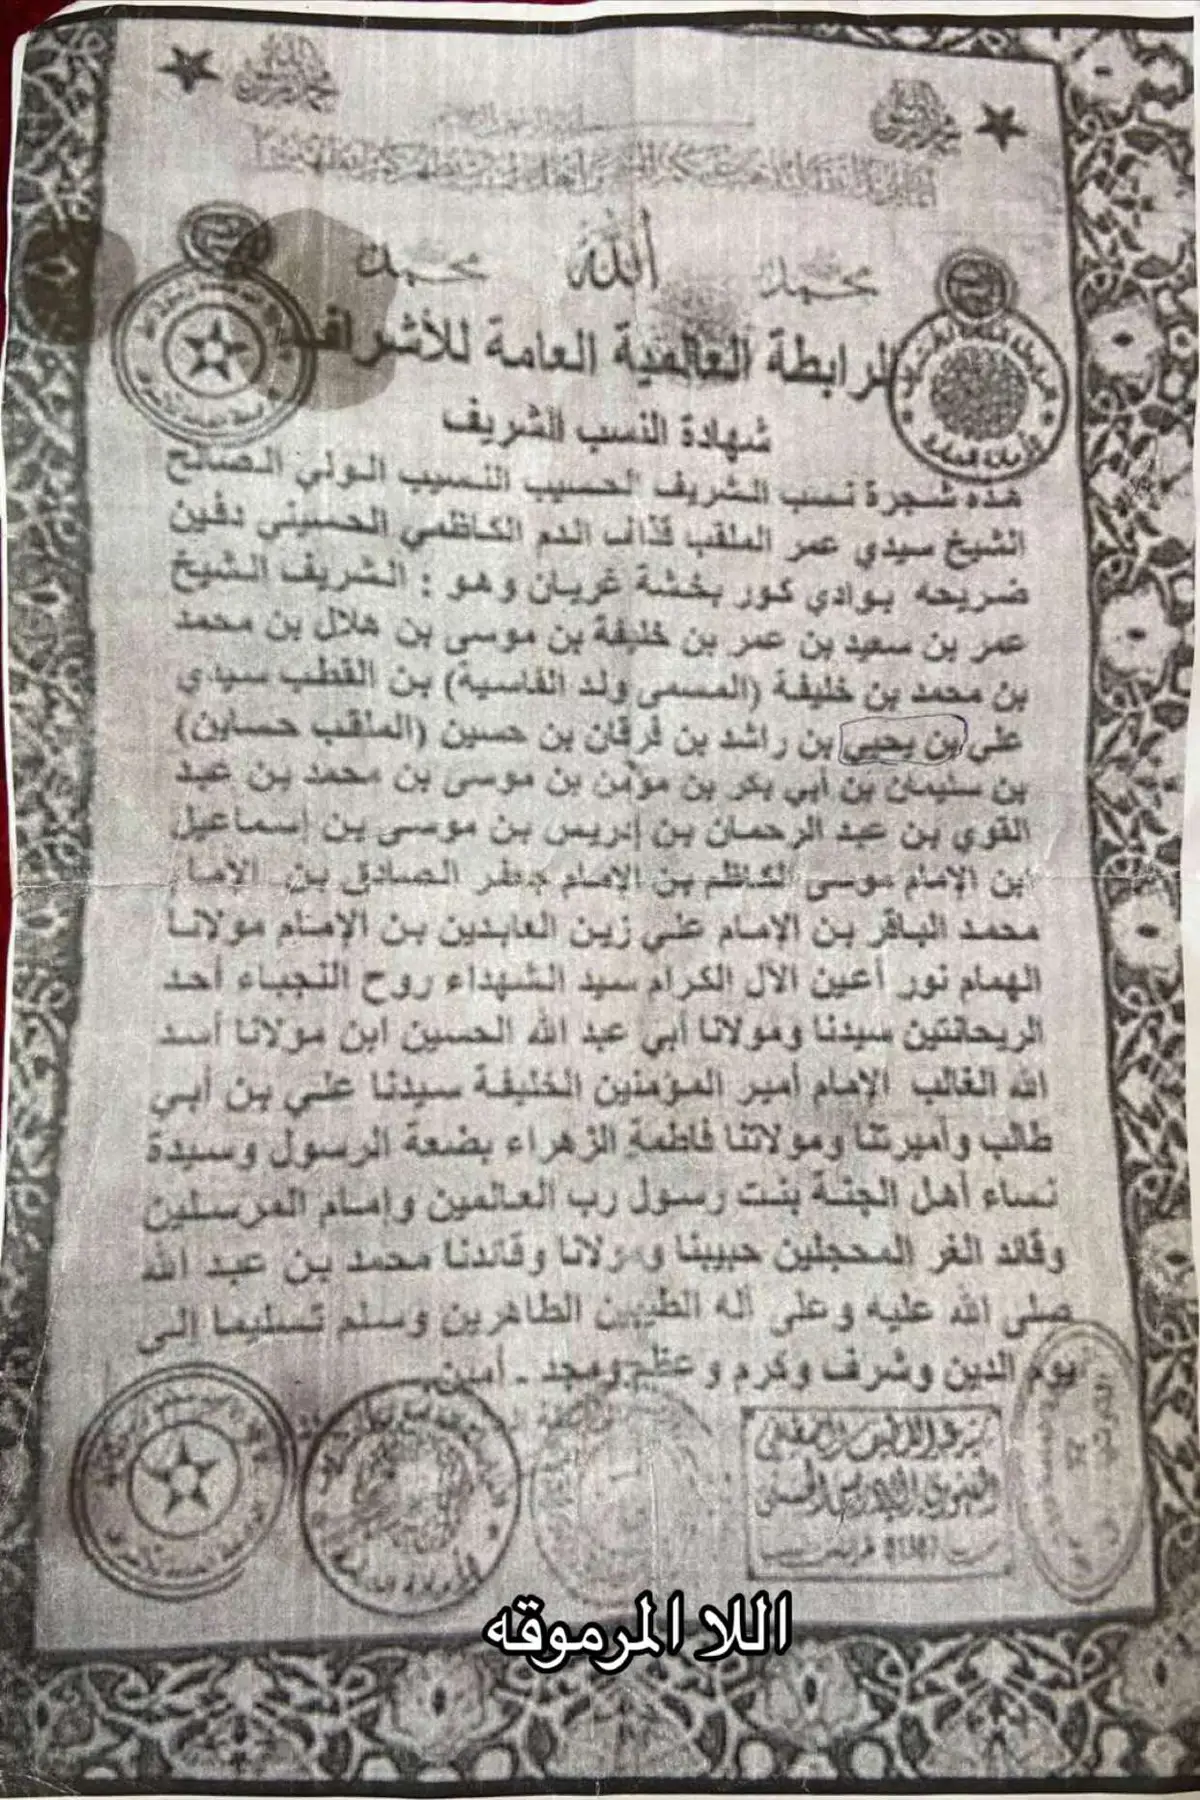 محمد الله محمد
الرابطة العالمية العامة للأشراف
شهادة النسب الشريف
هذه شجرة نسب الشريف الحسيب النسيب الولي الصالح
الشيخ سيدي عمر الملقب قذاف الدم الكاظمي الحسيني دفين
ضريحه بوادي كور بخشة غريان وهو : الشريف الشيخ
عمر بن سعيد بن عمر بن خليفة بن موسى بن هلال بن محمد
بن محمد بن خليفة (المسمى ولد الفاسية) بن القطب سيدي
علي بن يحيى بن راشد بن فرقان بن حسين (الملقب حساين)
بن سليمان بن أبي بكر بن مؤمن بن موسى بن محمد بن عبد
القوي بن عبد الرحمان بن إدريس بن موسى بن إسماعيل
ابن الإمام موسى الكاظم بن الإمام جعفر الصادق بن الإمام
محمد الباقر بن الإمام علي زين العابدين بن الإمام مولانا
الهمام نور أعين الآل الكرام سيد الشهداء روح النجباء أحد
الريحانتين سيدنا ومولانا أبي عبد الله الحسين ابن مولانا أسد
الله الغالب الإمام أمير المؤمنين الخليفة سيدنا علي بن أبي
طالب وأميرتنا ومولاتنا فاطمة الزهراء بضعة الرسول وسيدة
نساء أهل الجنة بنت رسول رب العالمين وإمام المرسلين
وقائد الغر المحجلين حبيبنا ومولانا وقائدنا محمد بن عبد الله
صلى الله عليه وعلى آله الطيبين الطاهرين وسلم تسليما إلى
يوم الدين وشرف وكرم وعظم ومجد . آمين
اللا المرموقه